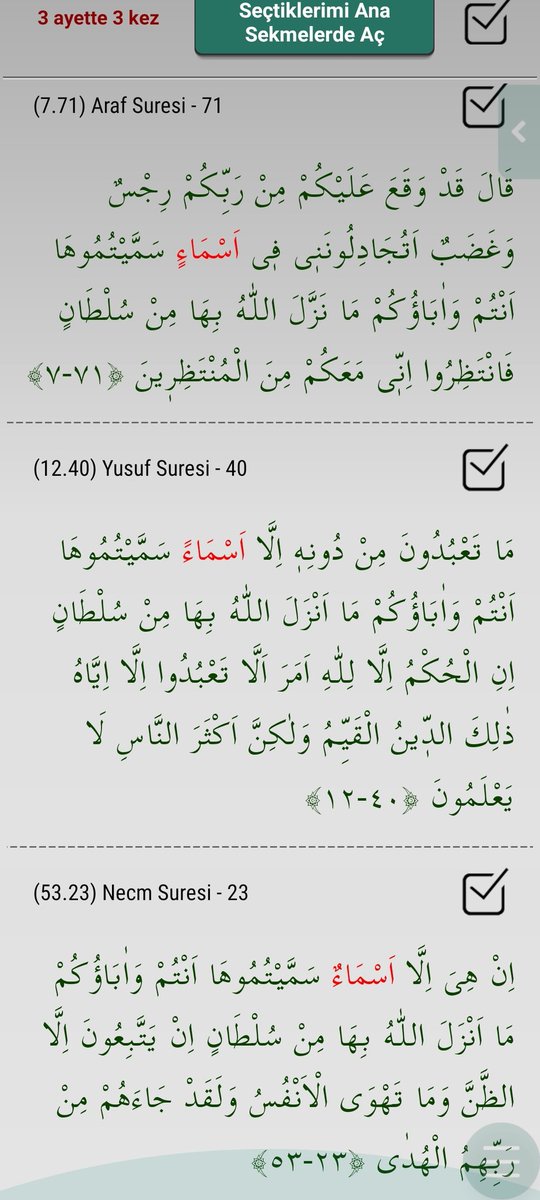 3 ayette 3 kez
Seçtiklerimi Ana
Sekmelerde Aç
(7.71) Araf Suresi - 71
قَالَ قَدْ وَقَعَ عَلَيْكُمْ مِنْ رَبِّكُمْ رِجْسٌ
وَغَضَبٌ اَتُجَادِلُونَنٖى فٖى اَسْمَاءٍ سَمَّيْتُمُوهَا
اَنْتُمْ وَاٰبَاؤُكُمْ مَا نَزَّلَ اللّٰهُ بِهَا مِنْ سُلْطَانٍ
فَانْتَظِرُوا اِنّٖى مَعَكُمْ مِنَ الْمُنْتَظِرٖينَ ﴿٧-٧١﴾
(12.40) Yusuf Suresi - 40
مَا تَعْبُدُونَ مِنْ دُونِهٖ اِلَّا اَسْمَاءً سَمَّيْتُمُوهَا
اَنْتُمْ وَاٰبَاؤُكُمْ مَا اَنْزَلَ اللّٰهُ بِهَا مِنْ سُلْطَانٍ
اِنِ الْحُكْمُ اِلَّا لِلّٰهِ اَمَرَ اَلَّا تَعْبُدُوا اِلَّا اِيَّاهُ
ذٰلِكَ الدّٖينُ الْقَيِّمُ وَلٰكِنَّ اَكْثَرَ النَّاسِ لَا
يَعْلَمُونَ ﴿١٢-٤٠﴾
(53.23) Necm Suresi - 23
اِنْ هِىَ اِلَّا اَسْمَاءٌ سَمَّيْتُمُوهَا اَنْتُمْ وَاٰبَاؤُكُمْ
مَا اَنْزَلَ اللّٰهُ بِهَا مِنْ سُلْطَانٍ اِنْ يَتَّبِعُونَ اِلَّا
الظَّنَّ وَمَا تَهْوَى الْاَنْفُسُ وَلَقَدْ جَاءَهُمْ مِنْ
رَبِّهِمُ الْهُدٰى ﴿٥٣-٢٣﴾